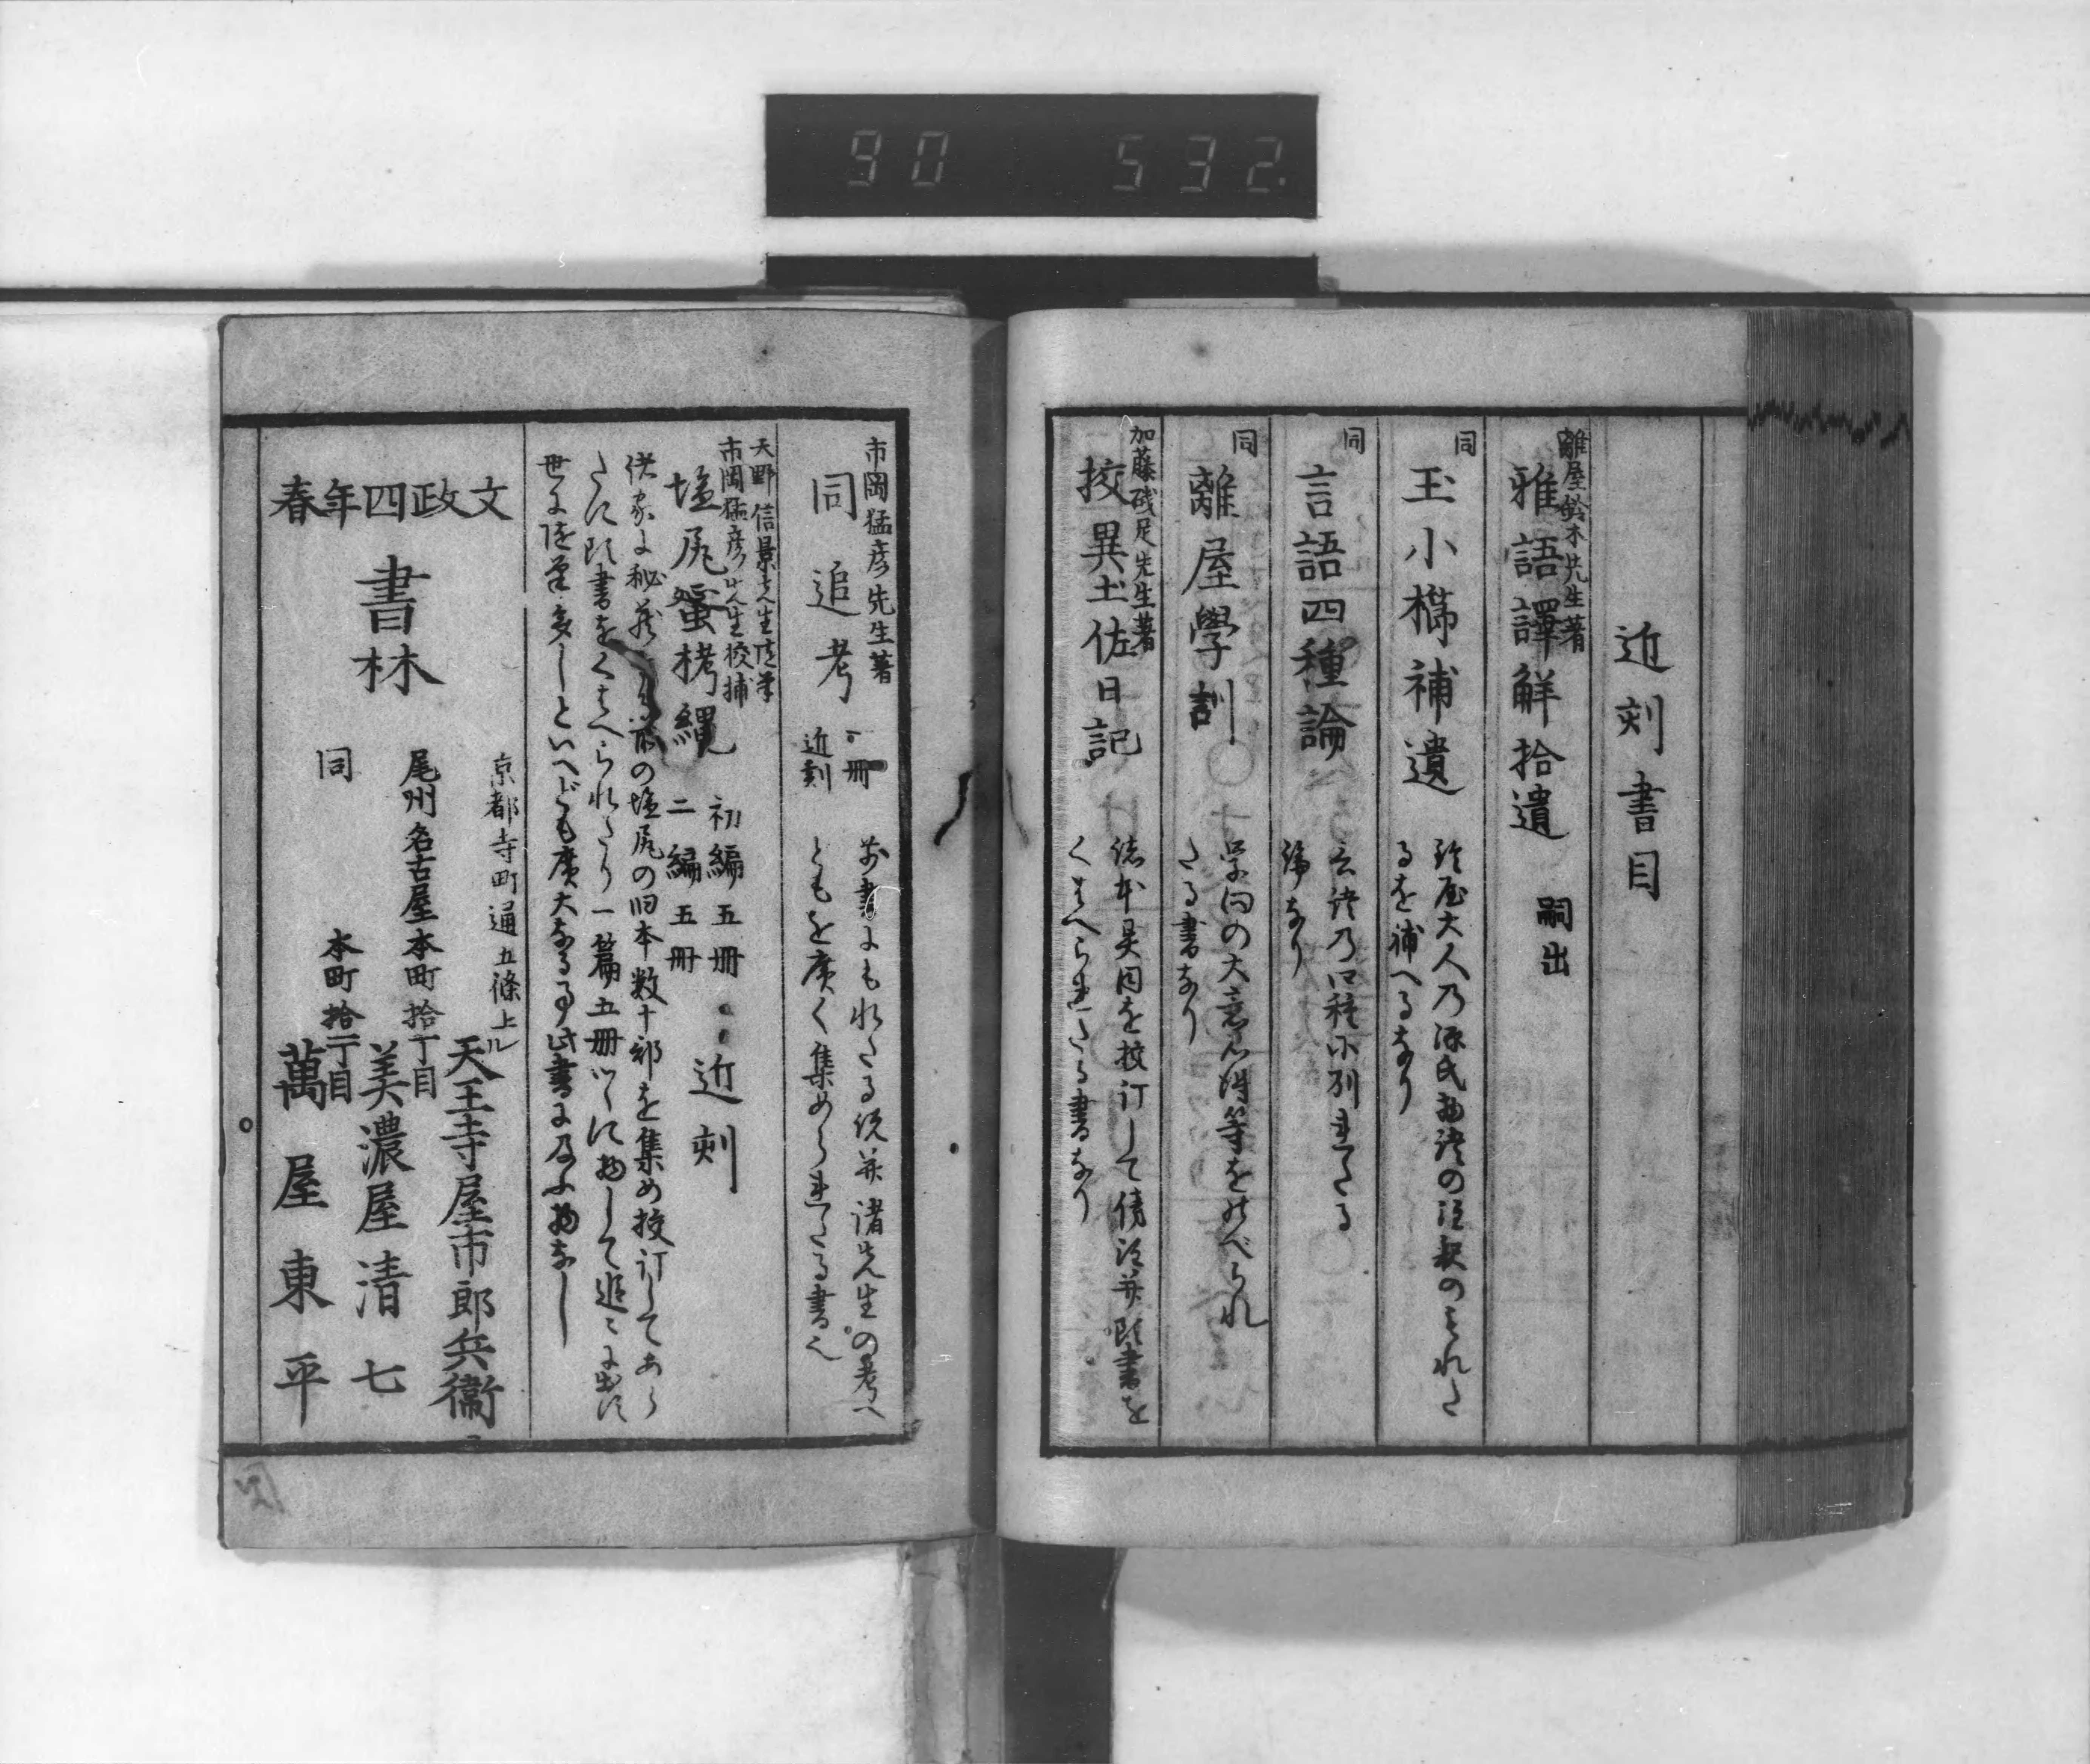 90 532
近刻書目
離屋鈴木先生著
雅語譯解拾遺 嗣出
同
玉小櫛補遺
鈴屋大人乃源氏物語の註釈のもれた
るを補へるなり
同
言語四種論
言語乃四種に別れたる
論なり
同
離屋學訓
学問の大意心得等をのべられ
たる書なり
加藤磯足先生著
挍異土佐日記
諸本異同を挍訂して傍注并頭書を
くはへられたる書なり
市岡猛彦先生著
同追考 一冊 近刻
前書にもれたる説并諸先生の考へ
ともを広く集めしるされたる書也
天野信景先生随筆
市岡猛彦先生挍補
塩尻 初編五冊
二編五冊 近刻
の塩尻の旧本数十部を集め挍訂してあら
たに頭書をくはへられたり一篇五冊づゝに物して追々に出す
世に随筆多しといへども廣大なる事此書に及ふ物なし
文政四年春
書林
京都寺町通五條上ル
天王寺屋市郎兵衞
尾州名古屋本町拾丁目
美濃屋清七
同 本町拾一丁目
萬屋東平